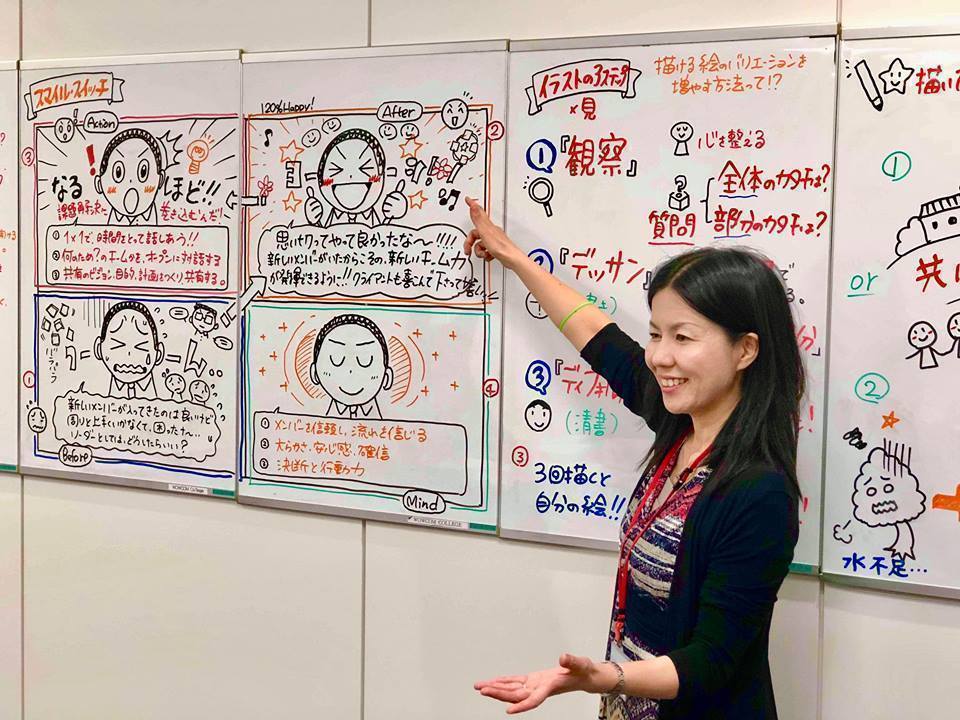 スマイル・スイッチ
③
Action
なる
ほど!!
課題解決に
巻き込むんだ!
① 1×1で、時間をとって話しあう!!
② 何のため?のチームかを、オープンに対話する
③ 共有のビジョン、目的、計画をつくり、共有する。
①
新しいメンバーが入ってきたのは良いけど
周りと上手くいかなくて、困ったな〜…
リーダーとしては、どうしたらいい?
Before
120% Happy!
After
②
思い切ってやって良かったな〜!!!!
新しいメンバーがいたからこその、新しいチーム力
が発揮できるように!! クライアントも喜んで下さって嬉しい
④
① メンバーを信頼し、流れを信じる
② 大らかさ、安心感、確信
③ 決断と行動力
Mind
NOWCOM COLLEGE
イラストの3ステップ
×見
描ける絵のバリエーションを
増やす方法って!?
①『観察』
心を整える
質問
全体のカタチは?
部分のカタチは?
『デッサン』
③
(清書)
③
3回描くと
自分の絵!!
①
or
②
水不足…